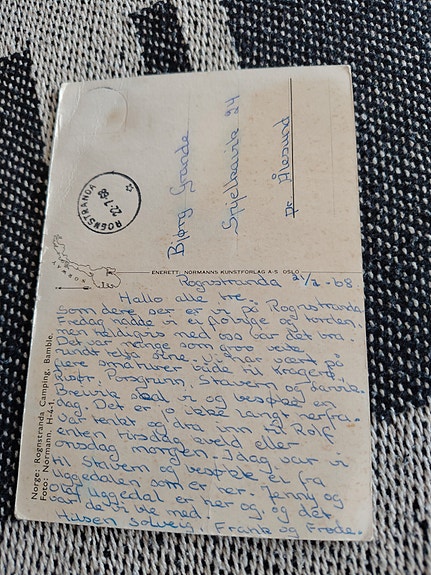 ROGNSTRANDA
22.7.68
Bjørg Grande
Spjelkavik 24
pr Ålesund
NORWAY
ENERETT: NORMANNS KUNSTFORLAG A-S OSLO
Norge: Rognstranda Camping, Bamble.
Foto: Normann. H-4-1.
Rognstranda 21/7 -68
Hallo alle tre.
Som dere ser er vi på Rognstranda
fredag hadde vi ei
men heldigvis med oss var det bra.
Det var mange som
rundt telta sine. Vi har vært på
fere opp turer både til Kragerø
Porsgrunn, Stavern og Larvik.
Breivik skal vi og besøke en
dag. Det er jo ikke langt herfra.
Var tenkt og dra inn til Rolf
enten Tirsdag kveld eller
onsdag morgen. Idag var vi
til Stavern og besøkte ei fra
Uggedalen som er her. Jenny og
Olaf Uggedal er her og, og det
er de vi ble med
Hilsen Solveig, Frank og Frode.